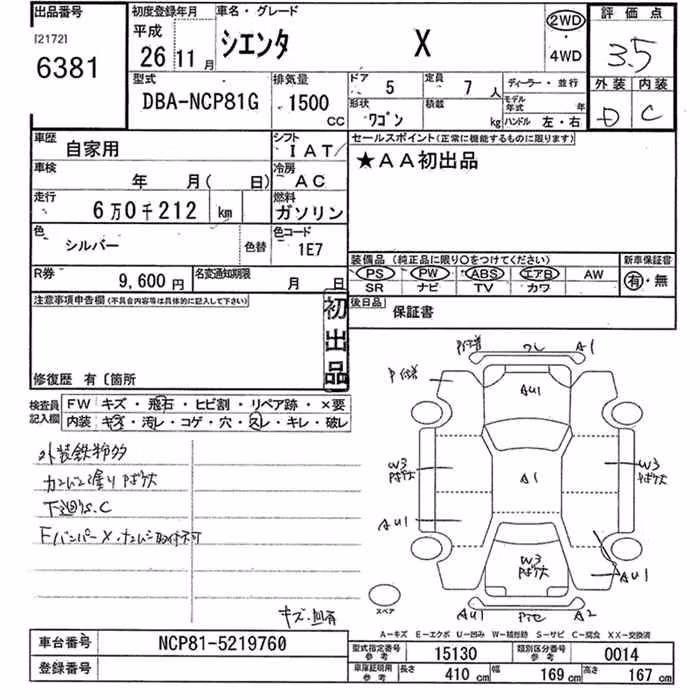 出品番号
[2172]
6381
初度登録年月
平成
26 11月
車名・グレード
シエンタ X
2WD
・
4WD
評価点
3.5
外装 内装
D C
型式
DBA-NCP81G
排気量
1500
CC
ドア 5
定員 7 人
形状 ワゴン
積載 kg
ディーラー・並行
モデル年式 年
ハンドル 左・右
車歴 自家用
シフト IAT
車検 年 月( 日)
冷房 AC
走行 6万0千212 km
燃料 ガソリン
色 シルバー 色替
色コード 1E7
R券 9,600円
名変通知期限 月 日
セールスポイント(正常に機能するものに限ります)
★AA初出品
装備品 (純正品に限り○をつけてください)
新車保証書
PS PW ABS エアB AW
有・無
SR ナビ TV カワ
後日品
保証書
注意事項申告欄(不具合内容等は具体的に記入して下さい)
初出品
修復歴 有〔箇所
検査員記入欄
FW キズ・飛石・ヒビ割・リペア跡・×要
内装 キズ・汚レ・コゲ・穴・スレ・キレ・破レ
外装鉄粉多
下廻りS.C
キズ・凹有
A1
AU1
A1
W3
W3
AU1
W3
AU1
AU1
A2
スペア
A－キズ E－エクボ U－凹み W－補修跡 S－サビ C－腐食 XX－交換済
車台番号 NCP81-5219760
登録番号
型式指定番号 参考 15130
類別区分番号 参考 0014
車庫証明用 参考 長さ 410 cm 幅 169 cm 高さ 167 cm